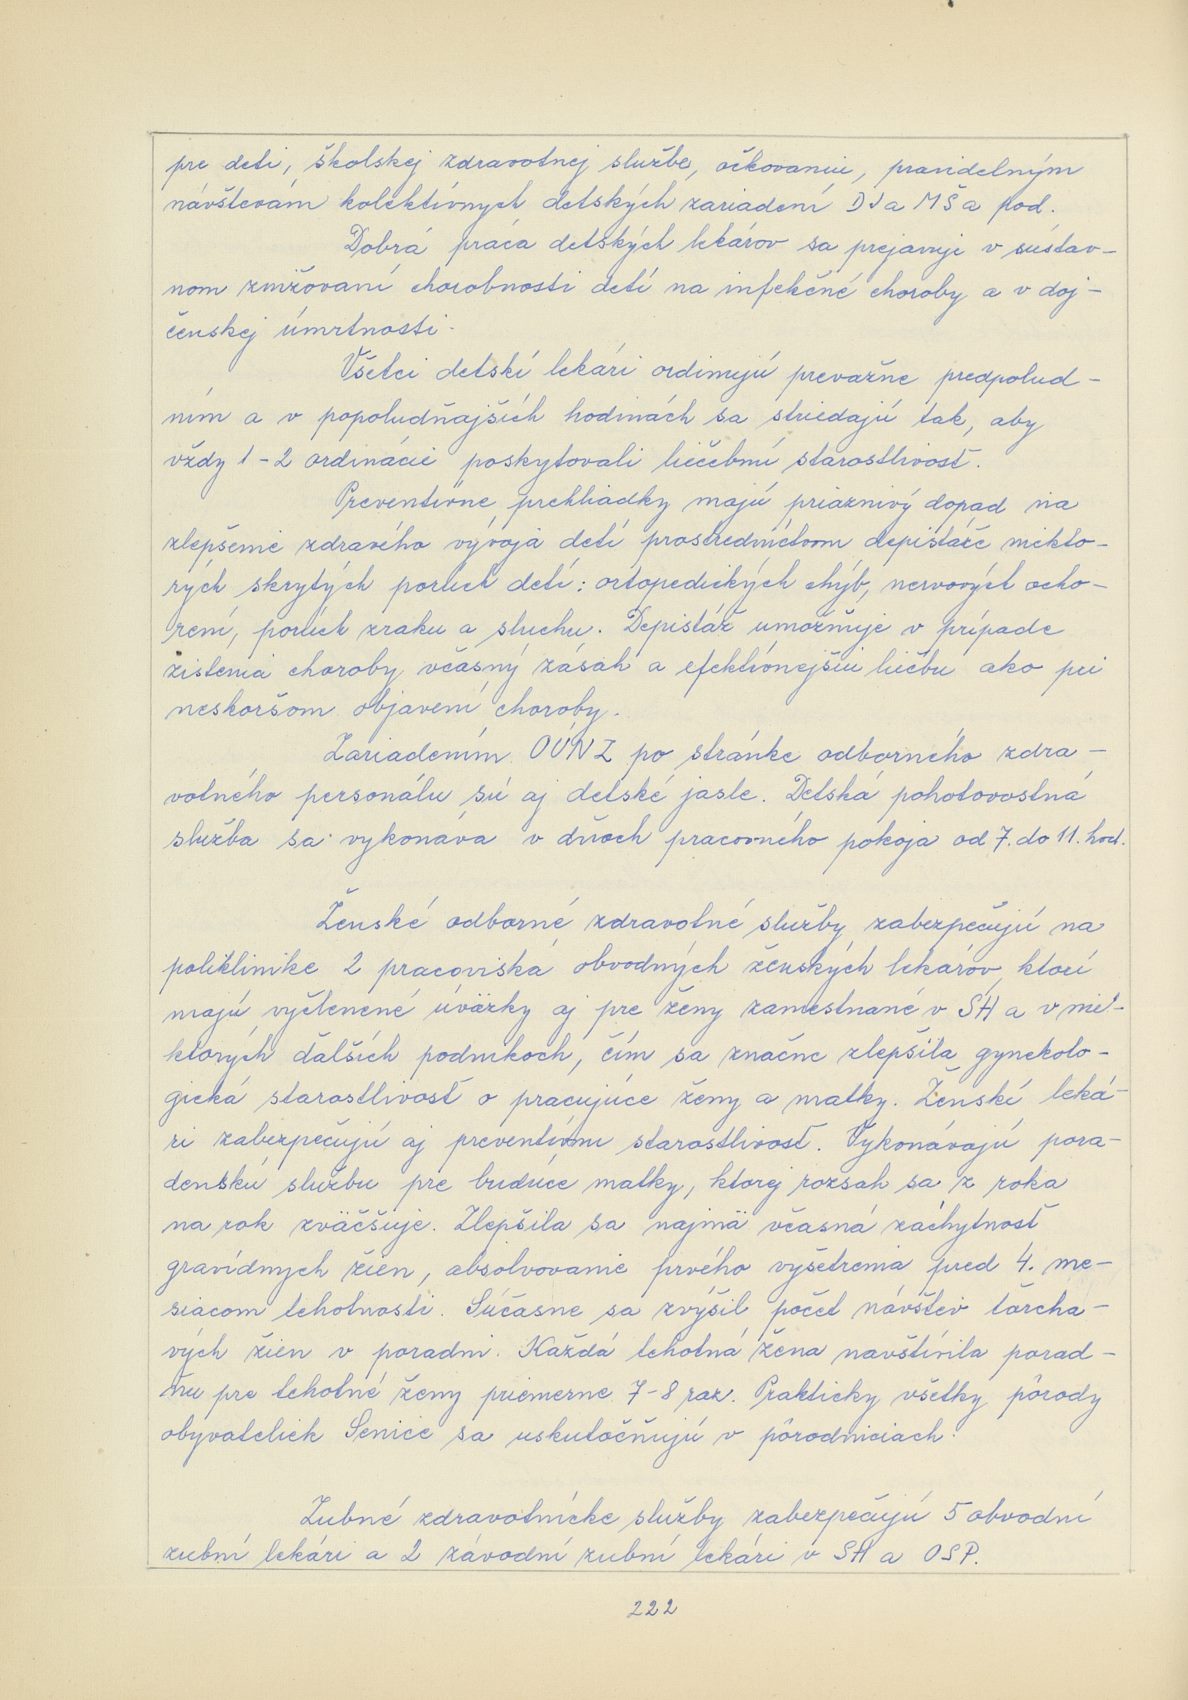 pre deti, školskej zdravotnej službe, očkovaniu, pravidelným
návštevám kolektívnych detských zariadení DJ a MŠ a pod.
Dobrá práca detských lekárov sa prejavuje v sústav-
nom znižovaní chorobnosti detí na infekčné choroby a v doj-
čenskej úmrtnosti.
Všetci detskí lekári ordinujú prevažne predpolud-
ním a v popoludňajších hodinách sa striedajú tak, aby
vždy 1-2 ordinácie poskytovali liečebnú starostlivosť.
Preventívne prehliadky majú priaznivý dopad na
zlepšenie zdravého vývoja detí prostredníctvom depistáže niekto-
rých skrytých porúch detí: ortopedických chýb, nervových ocho-
rení, porúch zraku a sluchu. Depistáž umožňuje v prípade
zistenia choroby včasný zásah a efektívnejšiu liečbu ako pri
neskoršom objavení choroby.
Zariadením OÚNZ po stránke odborného zdra-
votného personálu sú aj detské jasle. Detská pohotovostná
služba sa vykonáva v dňoch pracovného pokoja od 7. do 11. hod.
Ženské odborné zdravotné služby zabezpečujú na
poliklinike 2 pracoviská obvodných ženských lekárov, ktorí
majú vyčlenené úväzky aj pre ženy zamestnané v SH a v nie-
ktorých ďalších podnikoch, čím sa značne zlepšila gynekolo-
gická starostlivosť o pracujúce ženy a matky. Ženskí leká-
ri zabezpečujú aj preventívnu starostlivosť. Vykonávajú pora-
denskú službu pre budúce matky, ktorej rozsah sa z roka
na rok zväčšuje. Zlepšila sa najmä včasná záchytnosť
gravídnych žien, absolvovanie prvého vyšetrenia pred 4. me-
siacom tehotnosti. Súčasne sa zvýšil počet návštev ťarcha-
vých žien v poradni. Každá tehotná žena navštívila porad-
ňu pre tehotné ženy priemerne 7-8 raz. Prakticky všetky pôrody
obyvateliek Senice sa uskutočňujú v pôrodniciach.
Zubné zdravotnícke služby zabezpečujú 5 obvodní
zubní lekári a 2 závodní zubní lekári v SH a OSP.
222